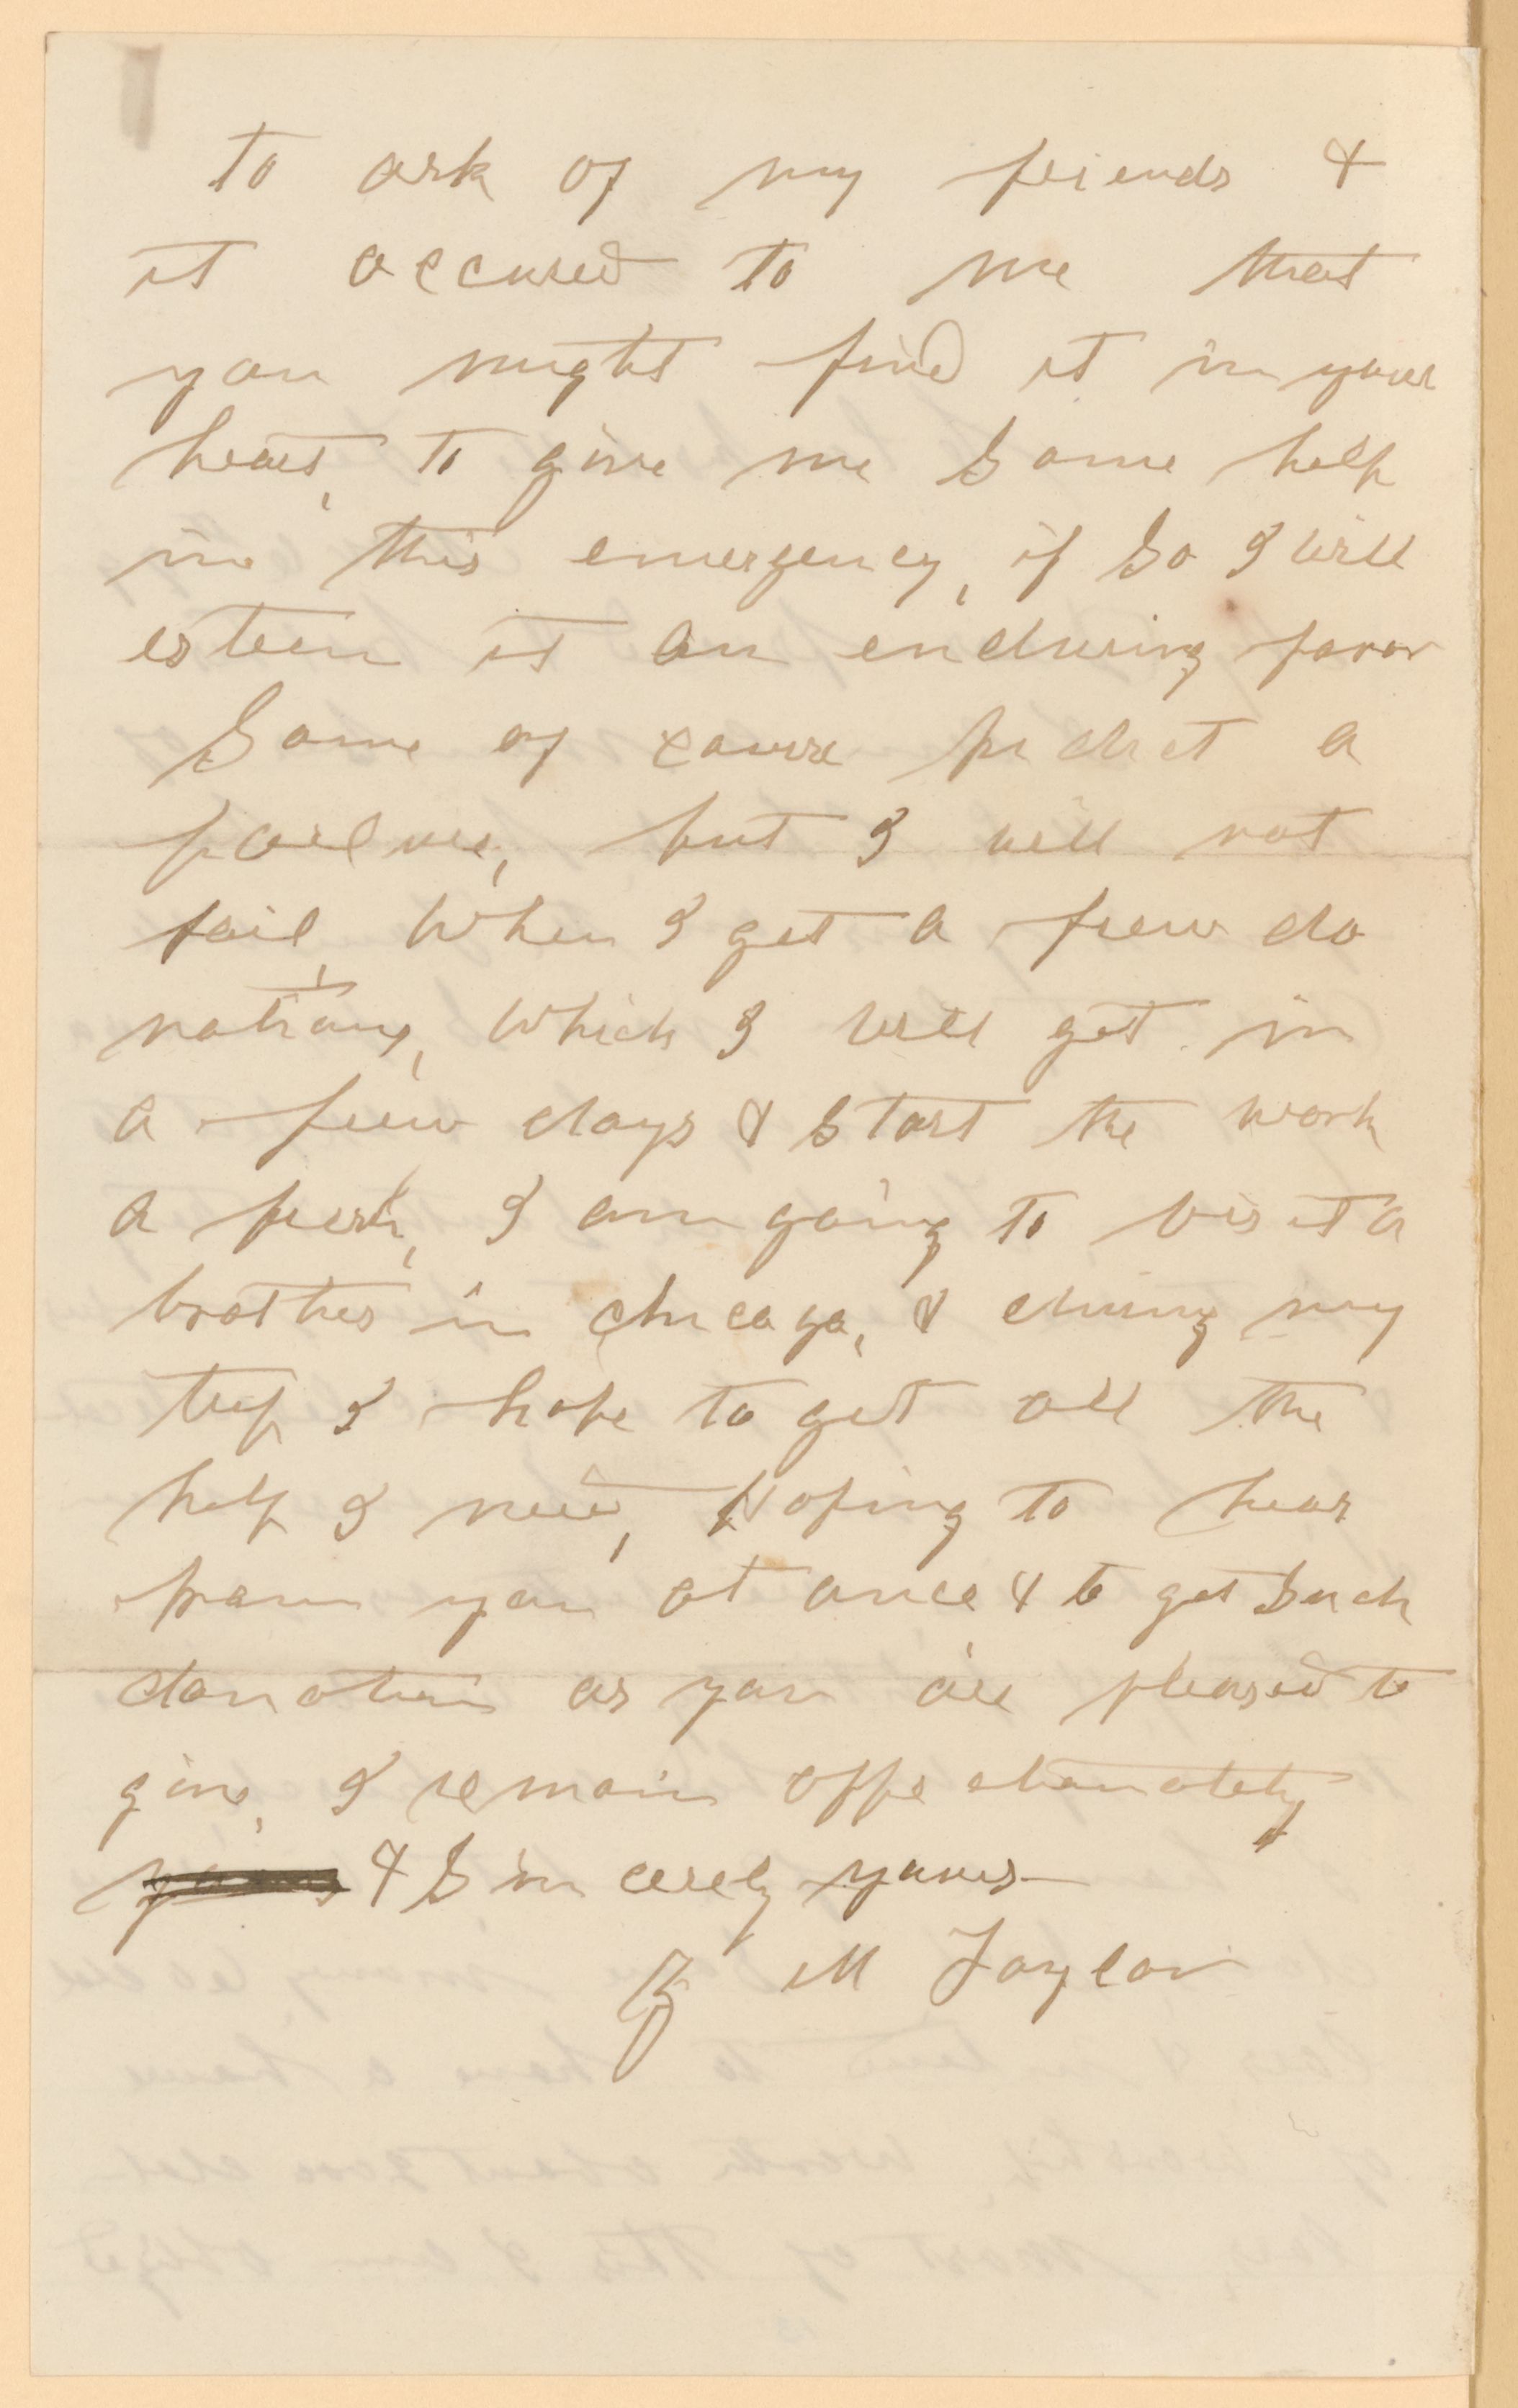 to ask of my friends &
it occured to me that
you might find it in your
heart, to give me some help
in this emergency, if so I will
esteem it an enduring favor
Some of course predict a
failure, but I will not
fail, When I get a few do
nations, which I will get in
a few days & start the work
a fresh, I am going to visit a
brother in Chicago, & during my
trip I hope to get all the
help I need, Hoping to hear
from you at once & to get such
donation as you are pleased to
give, I remain affectionately
yours & Sincerely yours
M Taylor